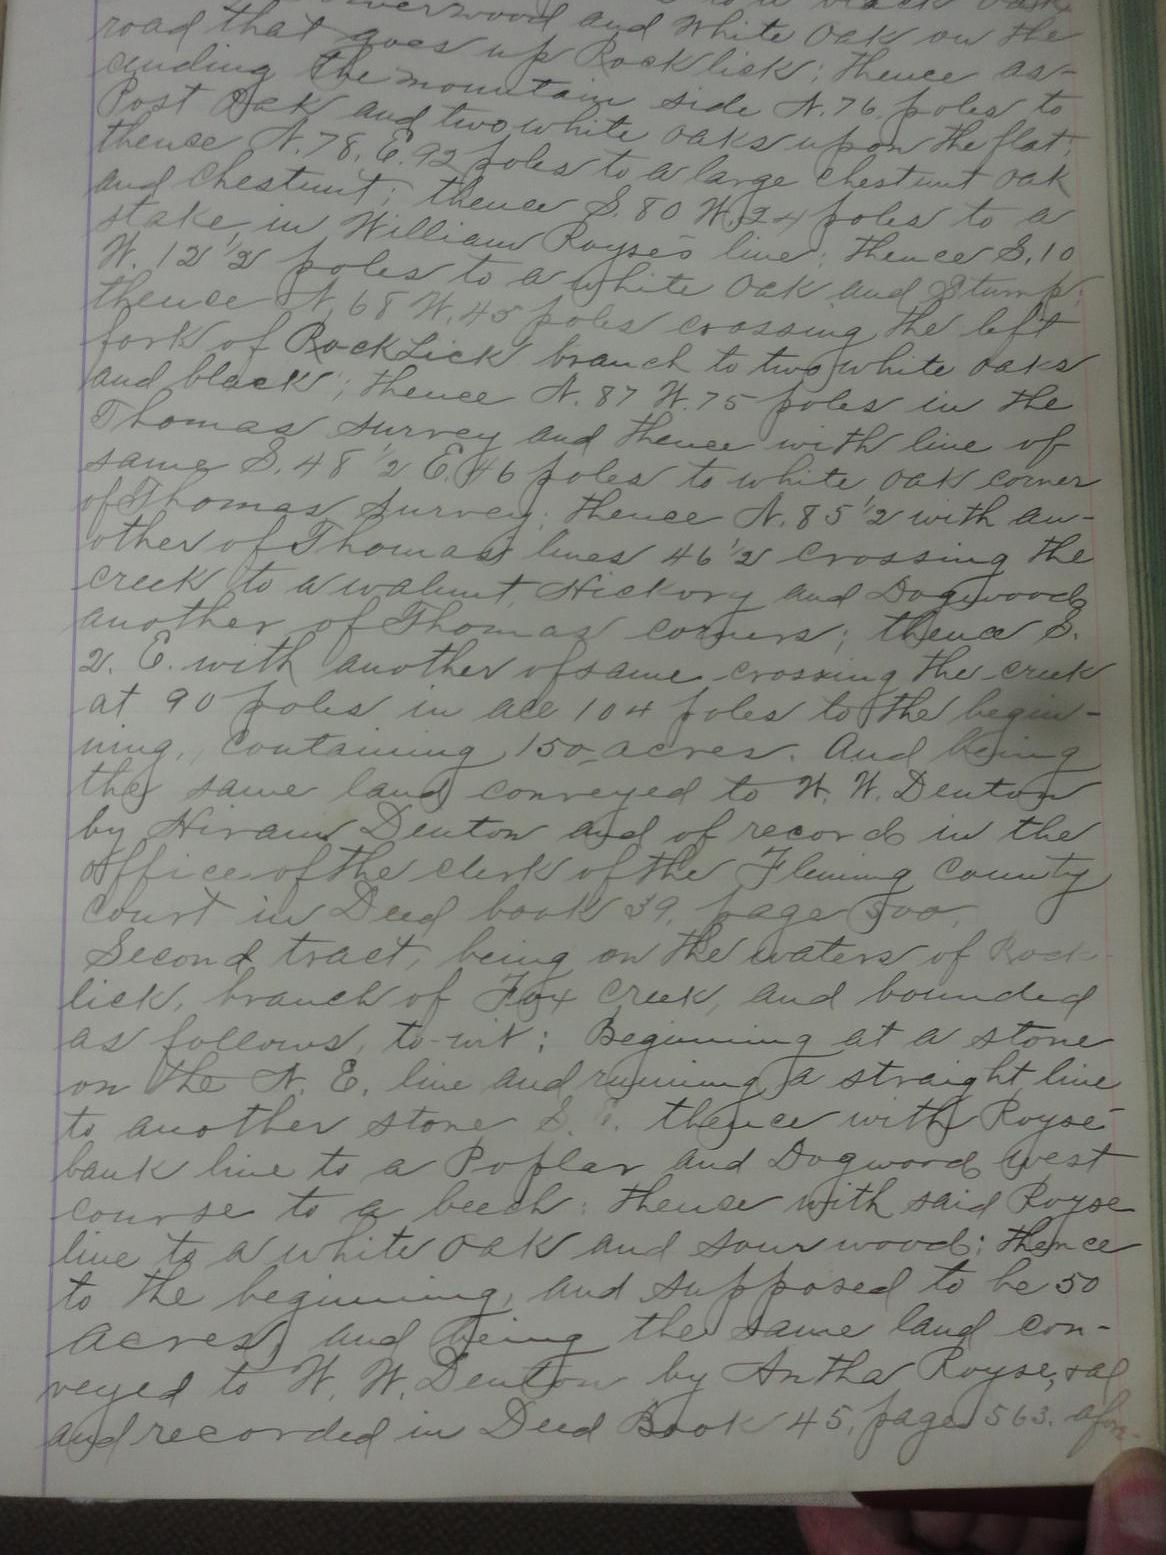 and White Oak on the
road that goes up Rock lick; thence as-
cending the mountain side N. 76 poles to
Post Oak and two white oaks upon the flat;
thence N. 78, E. 92 poles to a large chestnut oak
and chestnut; thence S. 80 W. 24 poles to a
stake in William Royse's line; thence S. 10
W. 12 1/2 poles to a white oak and Stump;
thence N. 68 W. 45 poles crossing the left
fork of Rock Lick branch to two white oaks
and black; thence N. 87 W. 75 poles in the
Thomas survey and thence with line of
same S. 48 1/2 E. 46 poles to white oak corner
of Thomas survey; thence N. 85 1/2 with an-
other of Thomas lines 46 1/2 crossing the
creek to a walnut, Hickory and Dogwood
another of Thomas corners; thence S.
2. E. with another of same crossing the creek
at 90 poles in all 104 poles to the begin-
ning, containing 150 acres. And being
the same land conveyed to W. W. Denton
by Hiram Denton and of record in the
office of the clerk of the Fleming County
Court in Deed book 39, page 300,
Second tract, being on the waters of Rock
lick, branch of Fox Creek, and bounded
as follows, to-wit; Beginning at a stone
on the N. E. line and running a straight line
to another stone S. thence with Royse
bank line to a Poplar and Dogwood west
course to a beech; thence with said Royse
line to a white oak and sourwood; thence
to the beginning, and supposed to be 50
acres, and being the same land con-
veyed to W. W. Denton by Antha Royse,
and recorded in Deed Book 45, page 563.